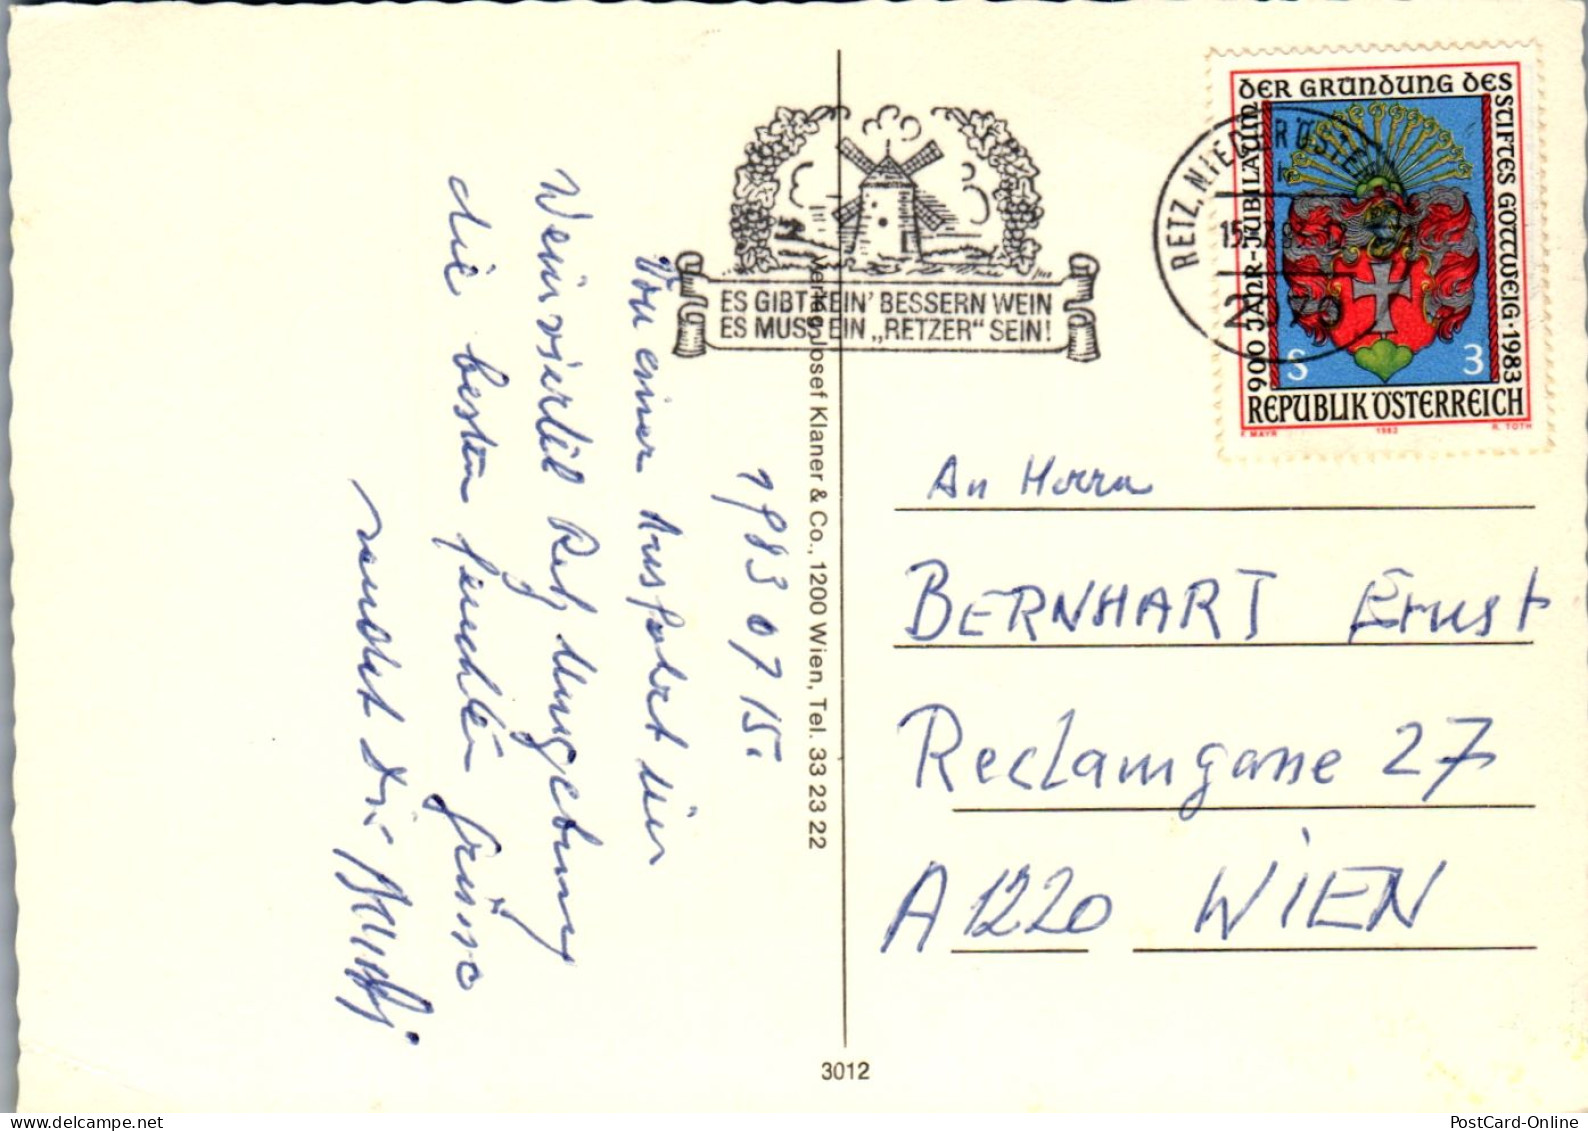 1983 07 15.
Von einer Ausfahrt ins
Weinviertel Retz, Umgebung
die besten feuchten Grüsse
sendet Dir
Verlag Josef Klaner & Co., 1200 Wien, Tel. 33 23 22
3012
ES GIBT KEIN' BESSERN WEIN
ES MUSS EIN „RETZER“ SEIN!
RETZ, NIEDERÖST.
2070
900 JAHR-JUBILÄUM DER GRÜNDUNG DES STIFTES GÖTTWEIG·1983
S 3
REPUBLIK ÖSTERREICH
F. MAYR 1983 R. TOTH
An Herrn
BERNHART Ernst
Reclamgasse 27
A 1220 WIEN
PostCard-Online